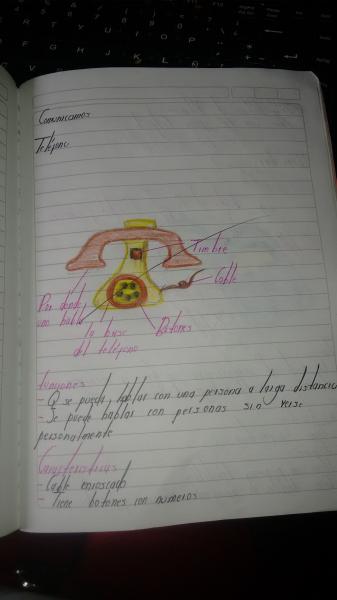 Comunicamos
Teléfono
Timbre
Cable
Por donde
uno habla
la base
del teléfono
Botones
funciones
- Q se puede hablar con una persona a larga distancia
- Se puede hablar con personas sin verse
personalmente
Caracteristicas
- Cable enroscado
- Tiene botones con numeros